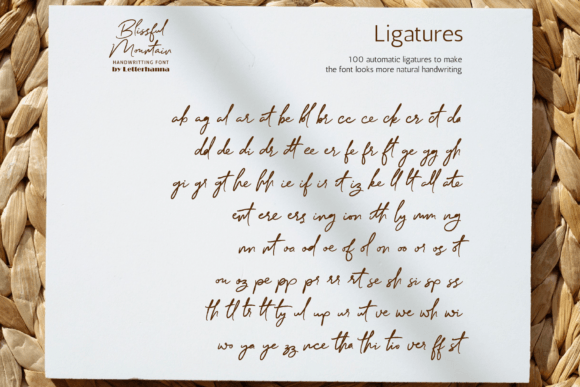 Blissful
Mountain
HANDWRITTING FONT
by Letterhanna
Ligatures
100 automatic ligatures to make
the font looks more natural handwriting
ab ag al ar at be bl br cc ce ck cr ct da
dd de di dr dt ee er fe fr ft ge gg gh
gi gr gt he hh ie if ir it iz ke ll lt all ate
ent ere ers ing ion th ly mm ng
nn nt oa od oe of ol on oo or os ot
ou oz pe pp pr rr rt se sh si sp ss
th tl tr tt ty ul up ur ut ve we wh wi
wo ya ye zz nce tha thi tio ver ff st